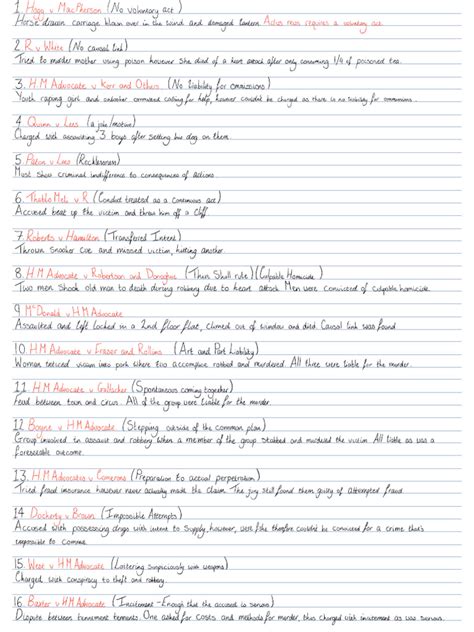 1. Hogg v MacPherson (No voluntary act)
Horse drawn carriage blown over in the wind and damaged lantern. Actus reus requires a voluntary act.
2. R v White (No causal link)
Tried to murder mother using poison however she died of a heart attack after only consuming 1/4 of poisoned tea.
3. HM Advocate v Kerr and Others (No liability for ommissions)
Youth raping girl and onlooker ommitted calling for help, however couldn't be charged as there is no liability for ommissions.
4. Quinn v Lees (a joke/motive)
Charged with assaulting 3 boys after setting his dog on them.
5. Paton v Lees (Recklessness)
Must show criminal indifference to consequences of actions
6. Thabo Meli v R (Conduct treated as a continuous act)
Accused beat up the victim and threw him off a cliff.
7. Roberts v Hamilton (Transferred Intent)
Thrown snooker cue and missed victim, hitting another.
8. HM Advocate v Robertson and Donoghue (Thin Skull rule) (Culpable Homicide)
Two men shook old man to death during robbing due to heart attack. Men were convicted of culpable homicide.
9. McDonald v HM Advocate
Assaulted and left locked in a 2nd floor flat, climed out of window and died. Causal link was found
10. HM Advocate v Fraser and Rollins (Art and Part Liability)
Woman enticed victim into park where two accomplice robbed and murdered. All three were liable for the murder.
11. HM Advocate v Gallacher (Spontaneous coming together)
Feud between town and circus. All of the group were liable for the murder.
12. Boyne v HM Advocate (Stepping outside of the common plan)
Group involved in assault and robbery when a member of the group stabbed and murdered the victim. All liable as was a
foreseeable outcome.
13. HM Advocates v Camerons (Preparation to accrual perpetration)
Tried fraud insurance however never actually made the claim. The jury still found them guilty of attempted fraud.
14. Docherty v Brown (Impossible Attempts)
Accused with possessing drugs with intent to supply, however, were therefore couldn't be convicted for a crime that's
impossible to commit.
15. West v HM Advocate (Loitering suspiciously with weapons)
Charged with conspiracy to theft and robbery.
16. Baxter v HM Advocate (Incitement - Enough that the accused is serious)
Dispute between tennement tennants. One asked for costs and methods for murder, thus charged with incitement as was serious.